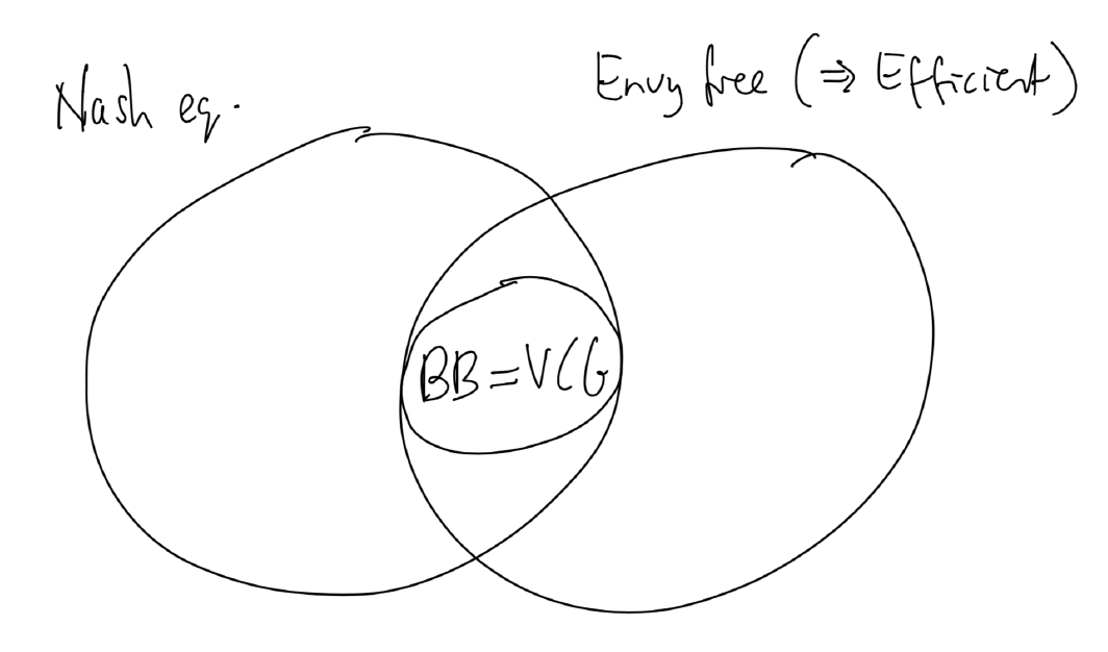 Nash eq.
Envy free (⇒ Efficient)
BB=VCG